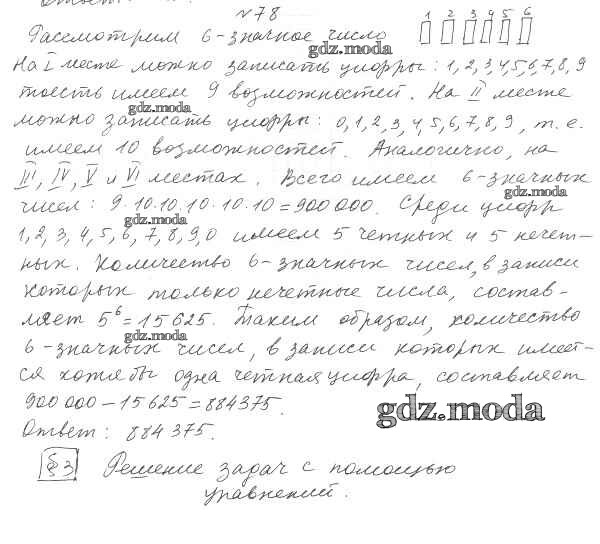 №78
1 2 3 4 5 6
Рассмотрим 6-значное число
gdz.moda
На I месте можно записать цифры: 1,2,3,4,5,6,7,8,9
тоесть имеем 9 возможностей. На II месте
gdz.moda
можно записать цифры: 0,1,2,3,4,5,6,7,8,9, т.е.
имеем 10 возможностей. Аналогично, на
III, IV, V и VI местах. Всего имеем 6-значных
gdz.moda
чисел: 9·10·10·10·10·10=900000. Среди цифр
gdz.moda
1,2,3,4,5,6,7,8,9,0 имеем 5 четных и 5 нечет-
ных. Количество 6-значных чисел, в записи
которых только нечетные числа, состав-
ляет 5⁶=15625. Таким образом, количество
gdz.moda
6-значных чисел, в записи которых имеет-
ся хотя бы одна четная цифра, составляет
900000-15625=884375.
gdz.moda
Ответ: 884375.
§3 Решение задач с помощью
уравнений.